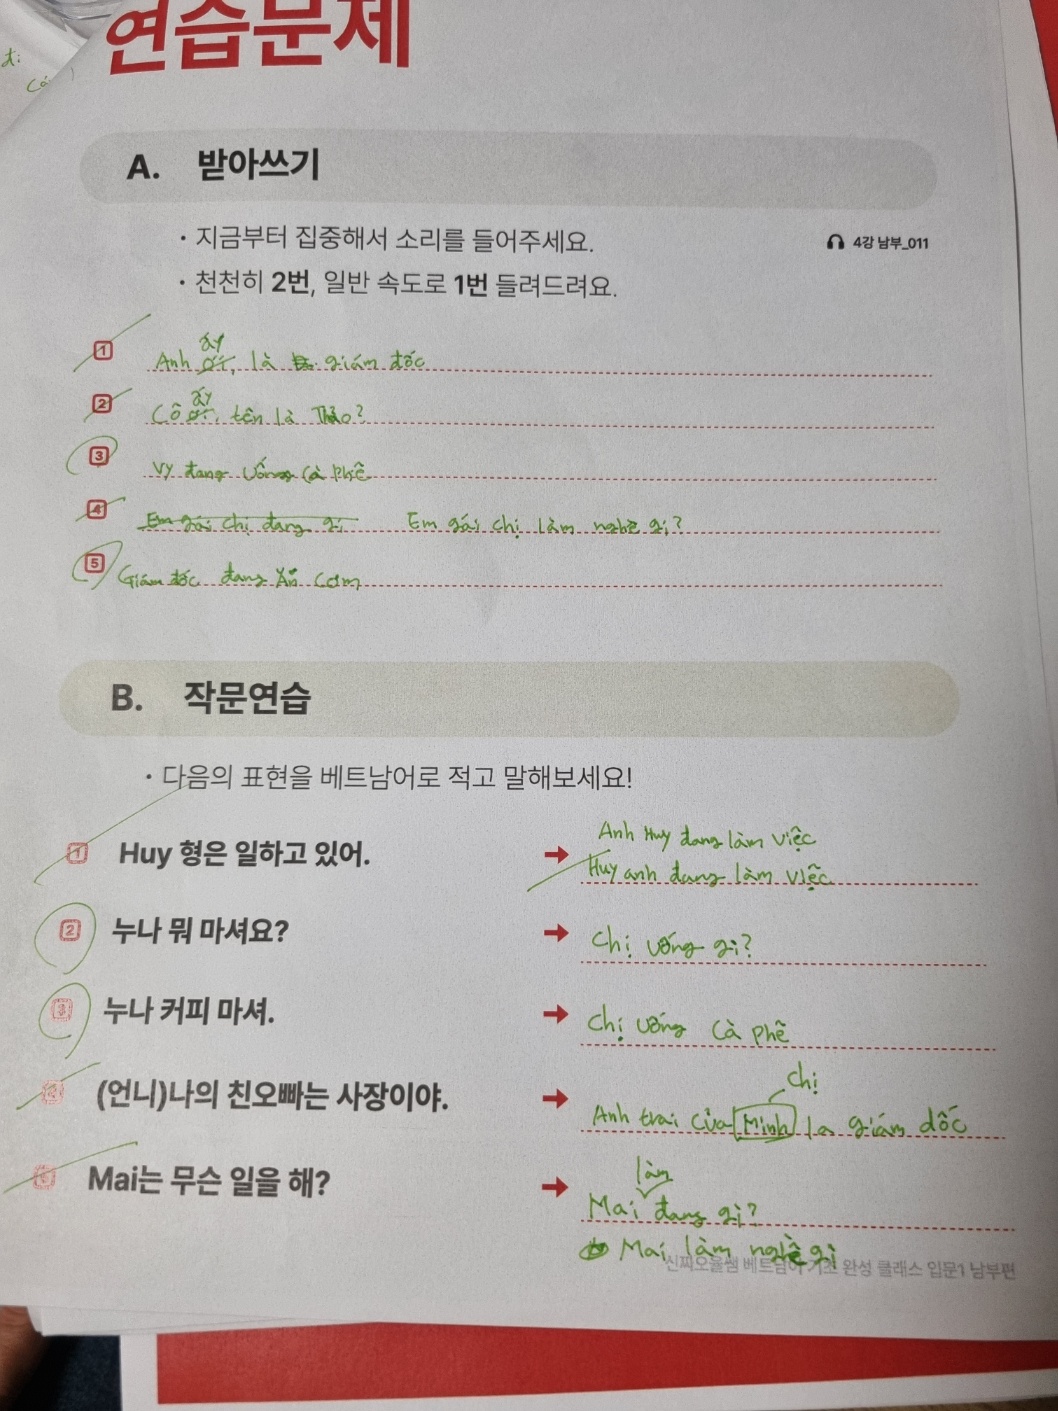 연습문제
A. 받아쓰기
• 지금부터 집중해서 소리를 들어주세요.
4강 남부_011
• 천천히 2번, 일반 속도로 1번 들려드려요.
ấy
1 Anh ơi, là giám đốc
ấy
2 Cô ơi, tên là Thảo?
3 Vy đang uống cà phê
4 Em gái chị đang gì Em gái chị làm nghề gì?
5 Giám đốc đang ăn cơm
B. 작문연습
• 다음의 표현을 베트남어로 적고 말해보세요!
Anh Huy đang làm việc
1 Huy 형은 일하고 있어. → Huy anh đang làm việc
2 누나 뭐 마셔요? → Chị uống gì?
3 누나 커피 마셔. → Chị uống cà phê
chị
4 (언니)나의 친오빠는 사장이야. → Anh trai của Mình la giám đốc
làm
5 Mai는 무슨 일을 해? → Mai đang gì?
Mai làm nghề gì
신짜오율쌤 베트남어 기초 완성 클래스 입문1 남부편